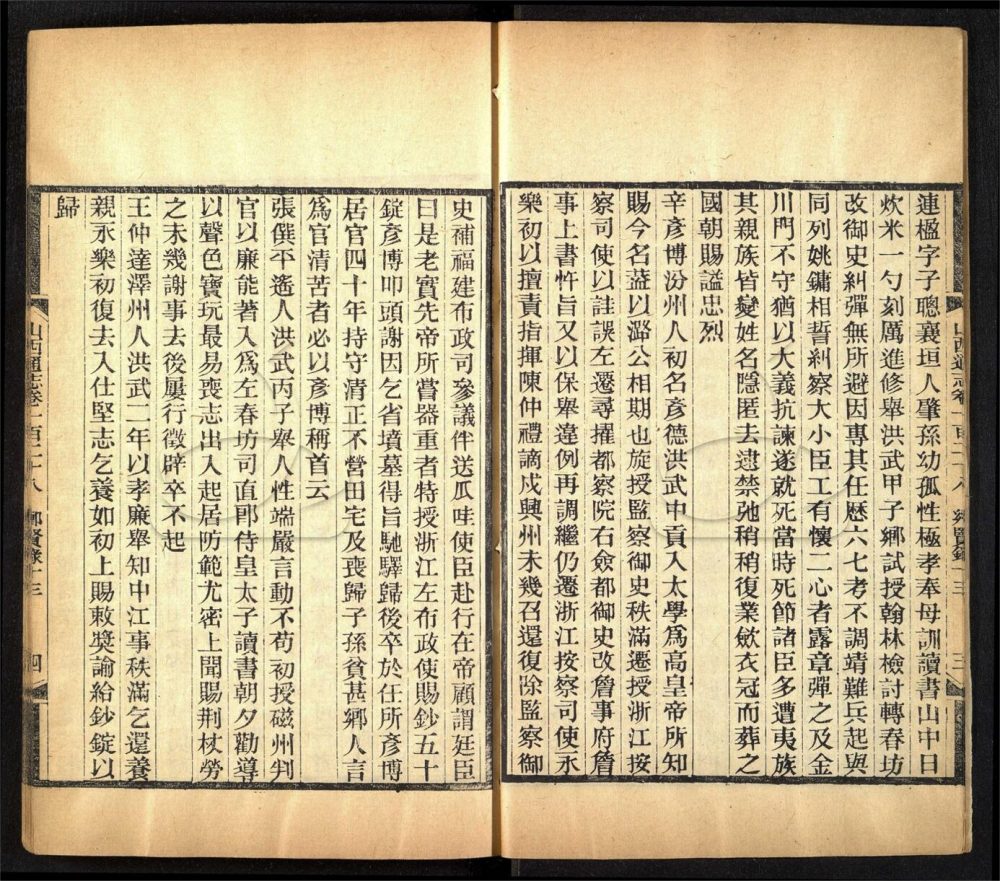 連楹字子聰襄垣人肇孫幼孤性極孝奉母訓讀書山中日
炊米一勺刻厲進修舉洪武甲子鄉試授翰林檢討轉春坊
改御史糾彈無所避因專其任歷六七考不調靖難兵起與
同列姚鏞相誓糾察大小臣工有懷二心者露章彈之及金
川門不守猶以大義抗諫遂就死當時死節諸臣多遭夷族
其親族皆變姓名隱匿去逮禁弛稍稍復業斂衣冠而葬之
國朝賜謚忠烈
辛彥博汾州人初名彥德洪武中貢入太學爲高皇帝所知
賜今名蓋以潞公相期也旋授監察御史秩滿遷授浙江按
察司使以詿誤左遷尋擢都察院右僉都御史改詹事府詹
事上書忤旨又以保舉違例再調繼仍遷浙江按察司使永
樂初以擅責指揮陳仲禮謫戍興州未幾召還復除監察御
山西通志卷一百二十八 鄉賢錄十三 三
史補福建布政司參議伴送瓜哇使臣赴行在帝顧謂廷臣
曰是老實先帝所嘗器重者特授浙江左布政使賜鈔五十
錠彥博叩頭謝因乞省墳墓得旨馳驛歸後卒於任所彥博
居官四十年持守清正不營田宅及喪歸子孫貧甚鄉人言
爲官清苦者必以彥博稱首云
張僎平遙人洪武丙子舉人性端嚴言動不苟初授磁州判
官以廉能著入爲左春坊司直郎侍皇太子讀書朝夕勸導
以聲色寶玩最易喪志出入起居防範尤密上聞賜荆杖勞
之未幾謝事去後屢行徵辟卒不起
王仲達澤州人洪武二年以孝廉舉知中江事秩滿乞還養
親永樂初復去入仕堅志乞養如初上賜敕奬諭給鈔錠以
歸
山西通志卷一百二十八 鄉賢錄十三 四